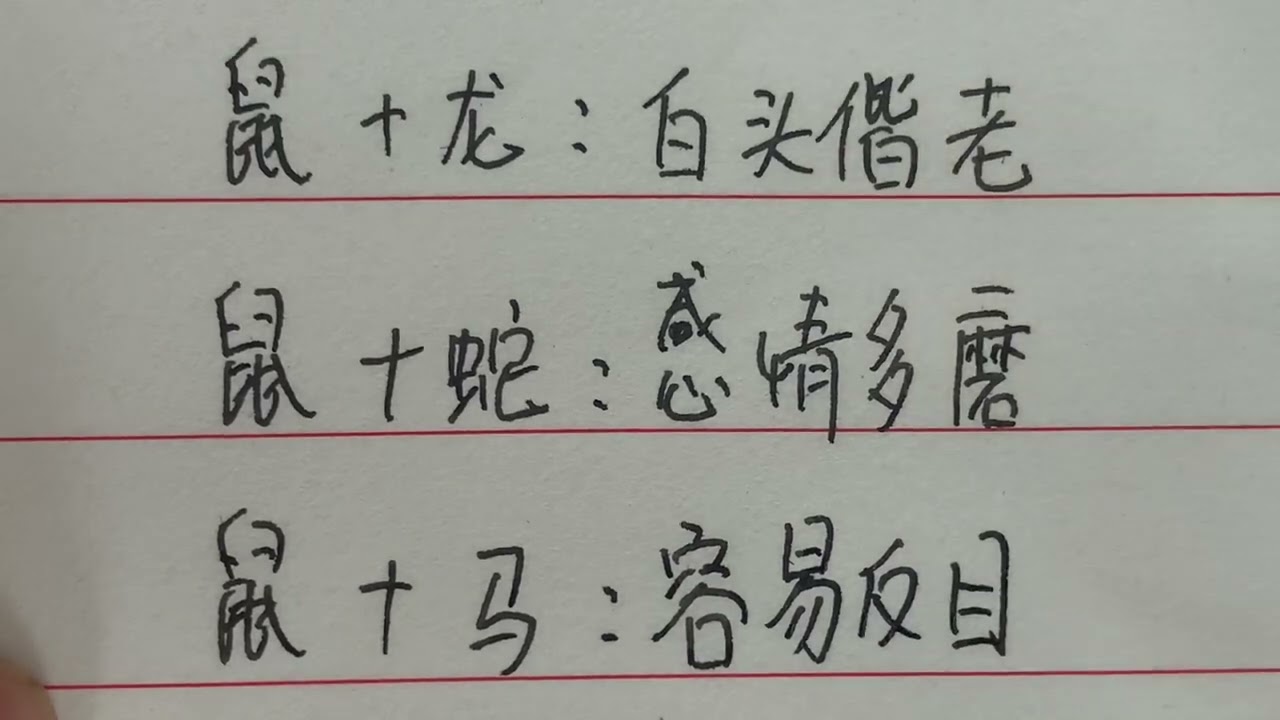 鼠+龙:白头偕老
鼠+蛇:感情多磨
鼠+马:容易反目